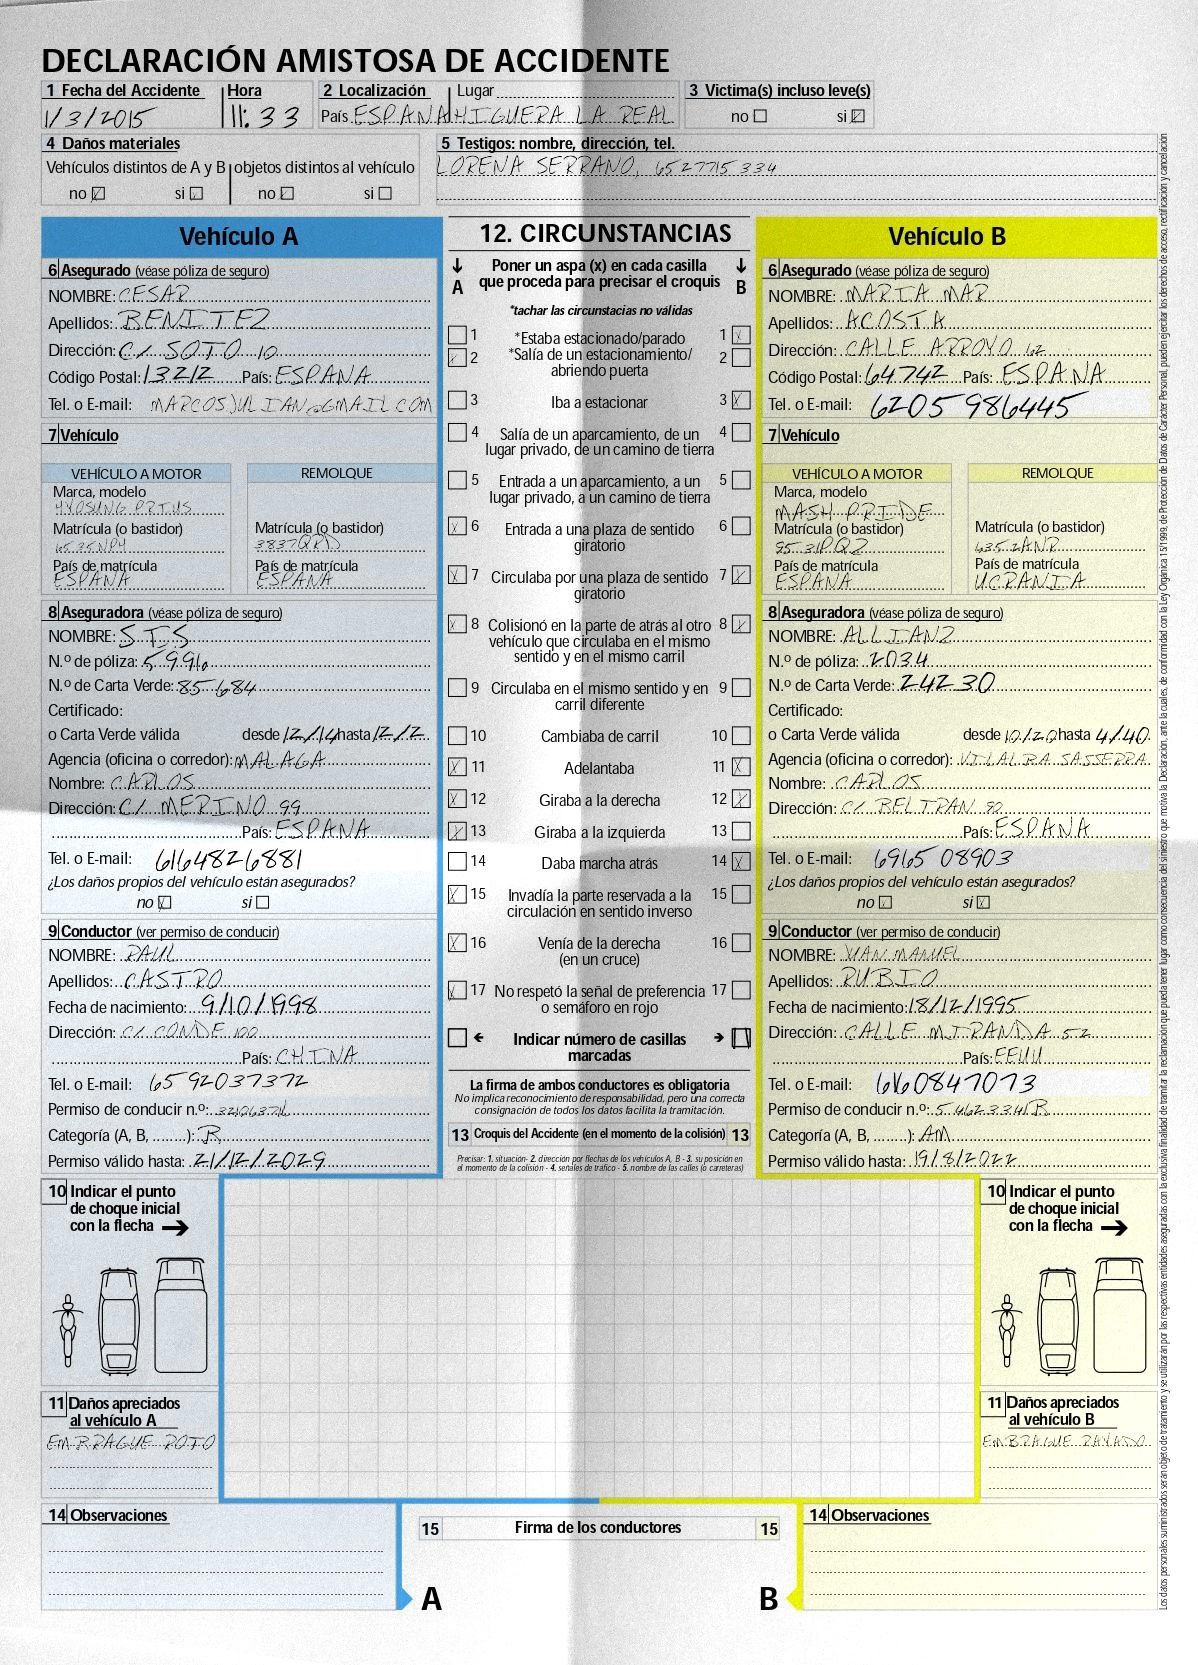 DECLARACIÓN AMISTOSA DE ACCIDENTE
1 Fecha del Accidente Hora 2 Localización Lugar 3 Victima(s) incluso leve(s)
1/3/2015 11:33 País ESPAÑA HIGUERA LA REAL no si
4 Daños materiales 5 Testigos: nombre, dirección, tel.
Vehículos distintos de A y B objetos distintos al vehículo LORENA SERRANO, 6527715334
no si no si
Vehículo A
6 Asegurado (véase póliza de seguro)
NOMBRE: CESAR
Apellidos: BENITEZ
Dirección: C/ SOTO 10
Código Postal: 13212 País: ESPAÑA
Tel. o E-mail: MARCOSJULIAN@GMAIL.COM
7 Vehículo
VEHÍCULO A MOTOR REMOLQUE
Marca, modelo
HYOSUNG PRIUS
Matrícula (o bastidor) Matrícula (o bastidor)
6535NPY 3837QRD
País de matrícula País de matrícula
ESPAÑA ESPAÑA
8 Aseguradora (véase póliza de seguro)
NOMBRE: STS
N.º de póliza: 5991
N.º de Carta Verde: 85684
Certificado:
o Carta Verde válida desde 12/14 hasta 12/2
Agencia (oficina o corredor): MALAGA
Nombre: CARLOS
Dirección: C/ MERINO 99
País: ESPAÑA
Tel. o E-mail: 6164826881
¿Los daños propios del vehículo están asegurados?
no si
9 Conductor (ver permiso de conducir)
NOMBRE: RAUL
Apellidos: CASTRO
Fecha de nacimiento: 9/10/1998
Dirección: C/ CONDE 100
País: CHINA
Tel. o E-mail: 6592037372
Permiso de conducir n.º:
Categoría (A, B, ........): B
Permiso válido hasta: 21/12/2029
12. CIRCUNSTANCIAS
A Poner un aspa (x) en cada casilla que proceda para precisar el croquis B
*tachar las circunstacias no válidas
1 *Estaba estacionado/parado 1
2 *Salía de un estacionamiento/ 2
abriendo puerta
3 Iba a estacionar 3
4 Salía de un aparcamiento, de un 4
lugar privado, de un camino de tierra
5 Entrada a un aparcamiento, a un 5
lugar privado, a un camino de tierra
6 Entrada a una plaza de sentido 6
giratorio
7 Circulaba por una plaza de sentido 7
giratorio
8 Colisionó en la parte de atrás al otro 8
vehículo que circulaba en el mismo
sentido y en el mismo carril
9 Circulaba en el mismo sentido y en 9
carril diferente
10 Cambiaba de carril 10
11 Adelantaba 11
12 Giraba a la derecha 12
13 Giraba a la izquierda 13
14 Daba marcha atrás 14
15 Invadía la parte reservada a la 15
circulación en sentido inverso
16 Venía de la derecha 16
(en un cruce)
17 No respetó la señal de preferencia 17
o semáforo en rojo
Indicar número de casillas
marcadas
La firma de ambos conductores es obligatoria
No implica reconocimiento de responsabilidad, pero una correcta
consignación de todos los datos facilita la tramitación.
13 Croquis del Accidente (en el momento de la colisión) 13
Precisar: 1. situación- 2. dirección por flechas de los vehículos A, B - 3. su posición en
el momento de la colisión - 4. señales de tráfico - 5. nombre de las calles (o carreteras)
Vehículo B
6 Asegurado (véase póliza de seguro)
NOMBRE: MARIA MAR
Apellidos: ACOSTA
Dirección: CALLE ARROYO 62
Código Postal: 64742 País: ESPAÑA
Tel. o E-mail: 6205986445
7 Vehículo
VEHÍCULO A MOTOR REMOLQUE
Marca, modelo
MASH PRIDE
Matrícula (o bastidor) Matrícula (o bastidor)
9531PQZ 6352ANR
País de matrícula País de matrícula
ESPAÑA UCRANIA
8 Aseguradora (véase póliza de seguro)
NOMBRE: ALLIANZ
N.º de póliza: 2034
N.º de Carta Verde: 24230
Certificado:
o Carta Verde válida desde 10/20 hasta 4/40
Agencia (oficina o corredor): VILALBA SASSERRA
Nombre: CARLOS
Dirección: C/ BELTRAN 90
País: ESPAÑA
Tel. o E-mail: 6965 08903
¿Los daños propios del vehículo están asegurados?
no si
9 Conductor (ver permiso de conducir)
NOMBRE: JUAN MANUEL
Apellidos: RUBIO
Fecha de nacimiento: 18/12/1995
Dirección: CALLE MIRANDA 52
País: EEUU
Tel. o E-mail: 6160847073
Permiso de conducir n.º: 5462334R
Categoría (A, B, ........): AM
Permiso válido hasta: 19/8/2022
10 Indicar el punto
de choque inicial
con la flecha
11 Daños apreciados
al vehículo A
EMBRAGUE ROTO
10 Indicar el punto
de choque inicial
con la flecha
11 Daños apreciados
al vehículo B
EMBRAGUE RAYADO
14 Observaciones
15 Firma de los conductores 15
A B
14 Observaciones
Los datos personales suministrados seran objeto de tratamiento y se utilizaran por las respectivas entidades aseguradas con la exclusiva finalidad de tramitar la reclamación que pueda tener lugar como consecuencia del siniestro que motiva la Declaración, ante la cuales, de conformidad con la Ley Organica 15/1999, de Protección de Datos de Carácter Personal, pueden ejercitar los derechos de acceso, rectificación y cancelación